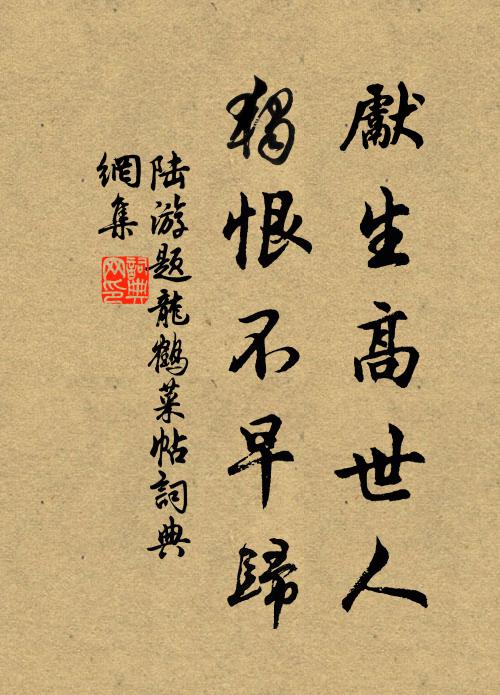 獻生高世人
獨恨不早歸
陆游题龍鶴菜帖詞典
網集
詞典
网印